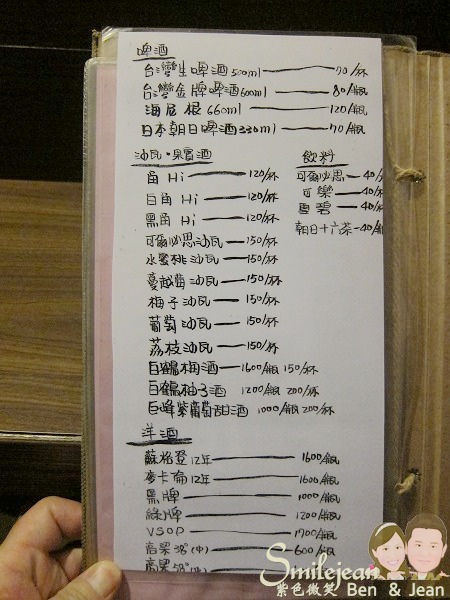 啤酒
台灣生啤酒500ml 70/杯
台灣金牌啤酒600ml 80/瓶
海尼根660ml 120/瓶
日本朝日啤酒330ml 70/瓶
沙瓦·果實酒
角Hi 120/杯
白角Hi 120/杯
黑角Hi 120/杯
可爾必思沙瓦 150/杯
水蜜桃沙瓦 150/杯
蔓越莓沙瓦 150/杯
梅子沙瓦 150/杯
葡萄沙瓦 150/杯
荔枝沙瓦 150/杯
白鶴梅酒 1600/瓶 150/杯
白鶴柚子酒 1200/瓶 200/杯
巨峰紫葡萄甜酒 1000/瓶 200/杯
飲料
可爾必思 40/
可樂 40/
雪碧 40/
朝日十六茶 40/瓶
洋酒
蘇格登12年 1600/瓶
麥卡倫12年 1600/瓶
黑牌 1000/瓶
綠牌 1200/瓶
VSOP 1700/瓶
高粱38°(中) 600/瓶
高粱58°(中)
Smilejean
紫色微笑 Ben & Jean